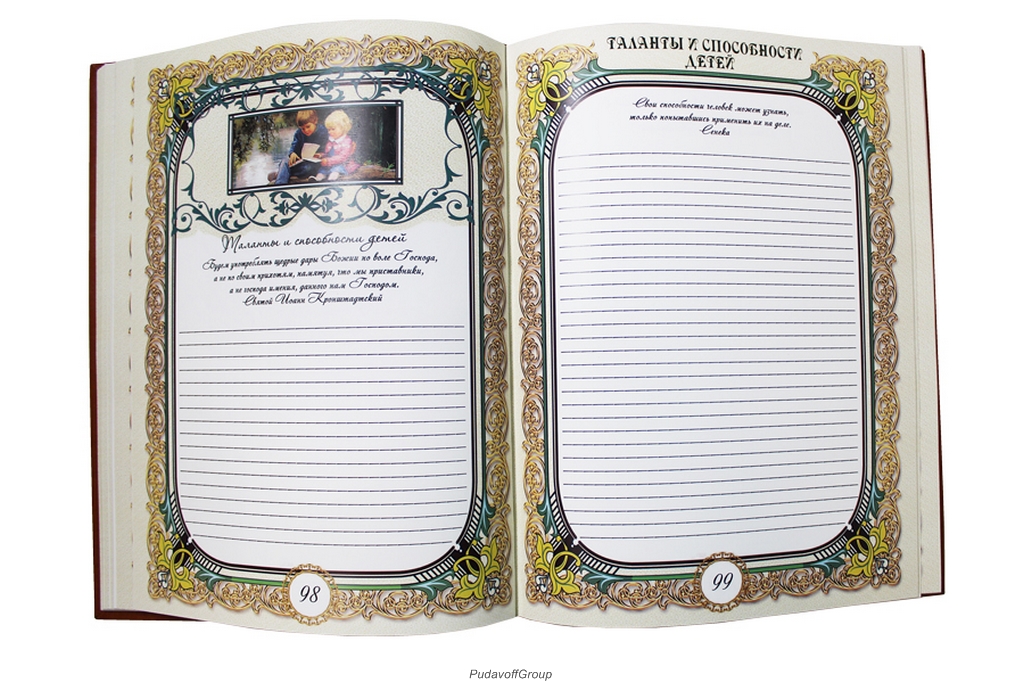 Таланты и способности детей
Будем употреблять щедрые дары Божии по воле Господа,
а не по своим прихотям, памятуя, что мы приставники,
а не господа имения, данного нам Господом.
Святой Иоанн Кронштадтский
98
ТАЛАНТЫ И СПОСОБНОСТИ
ДЕТЕЙ
Свои способности человек может узнать,
только попытавшись применить их на деле.
Сенека
99
PudavoffGroup